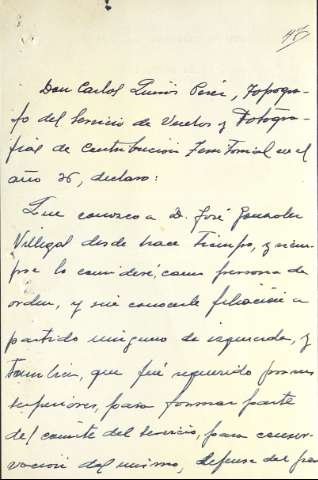 47
Don Carlos Quirós Pérez, Topogra-
fo del Servicio de Vuelos y Fotogra-
fias de Contribución Territorial en el
año 36, declaro:
Que conozco a D. José González
Villegal desde hace tiempo, y siem-
pre lo consideré, como persona de
orden, y sin conocerle filiación a
partido ninguno de izquierda, y
tambien, que fué requerido por sus
superiores, para formar parte
del comité del servicio, para conser-
vación del mismo, defensa del per